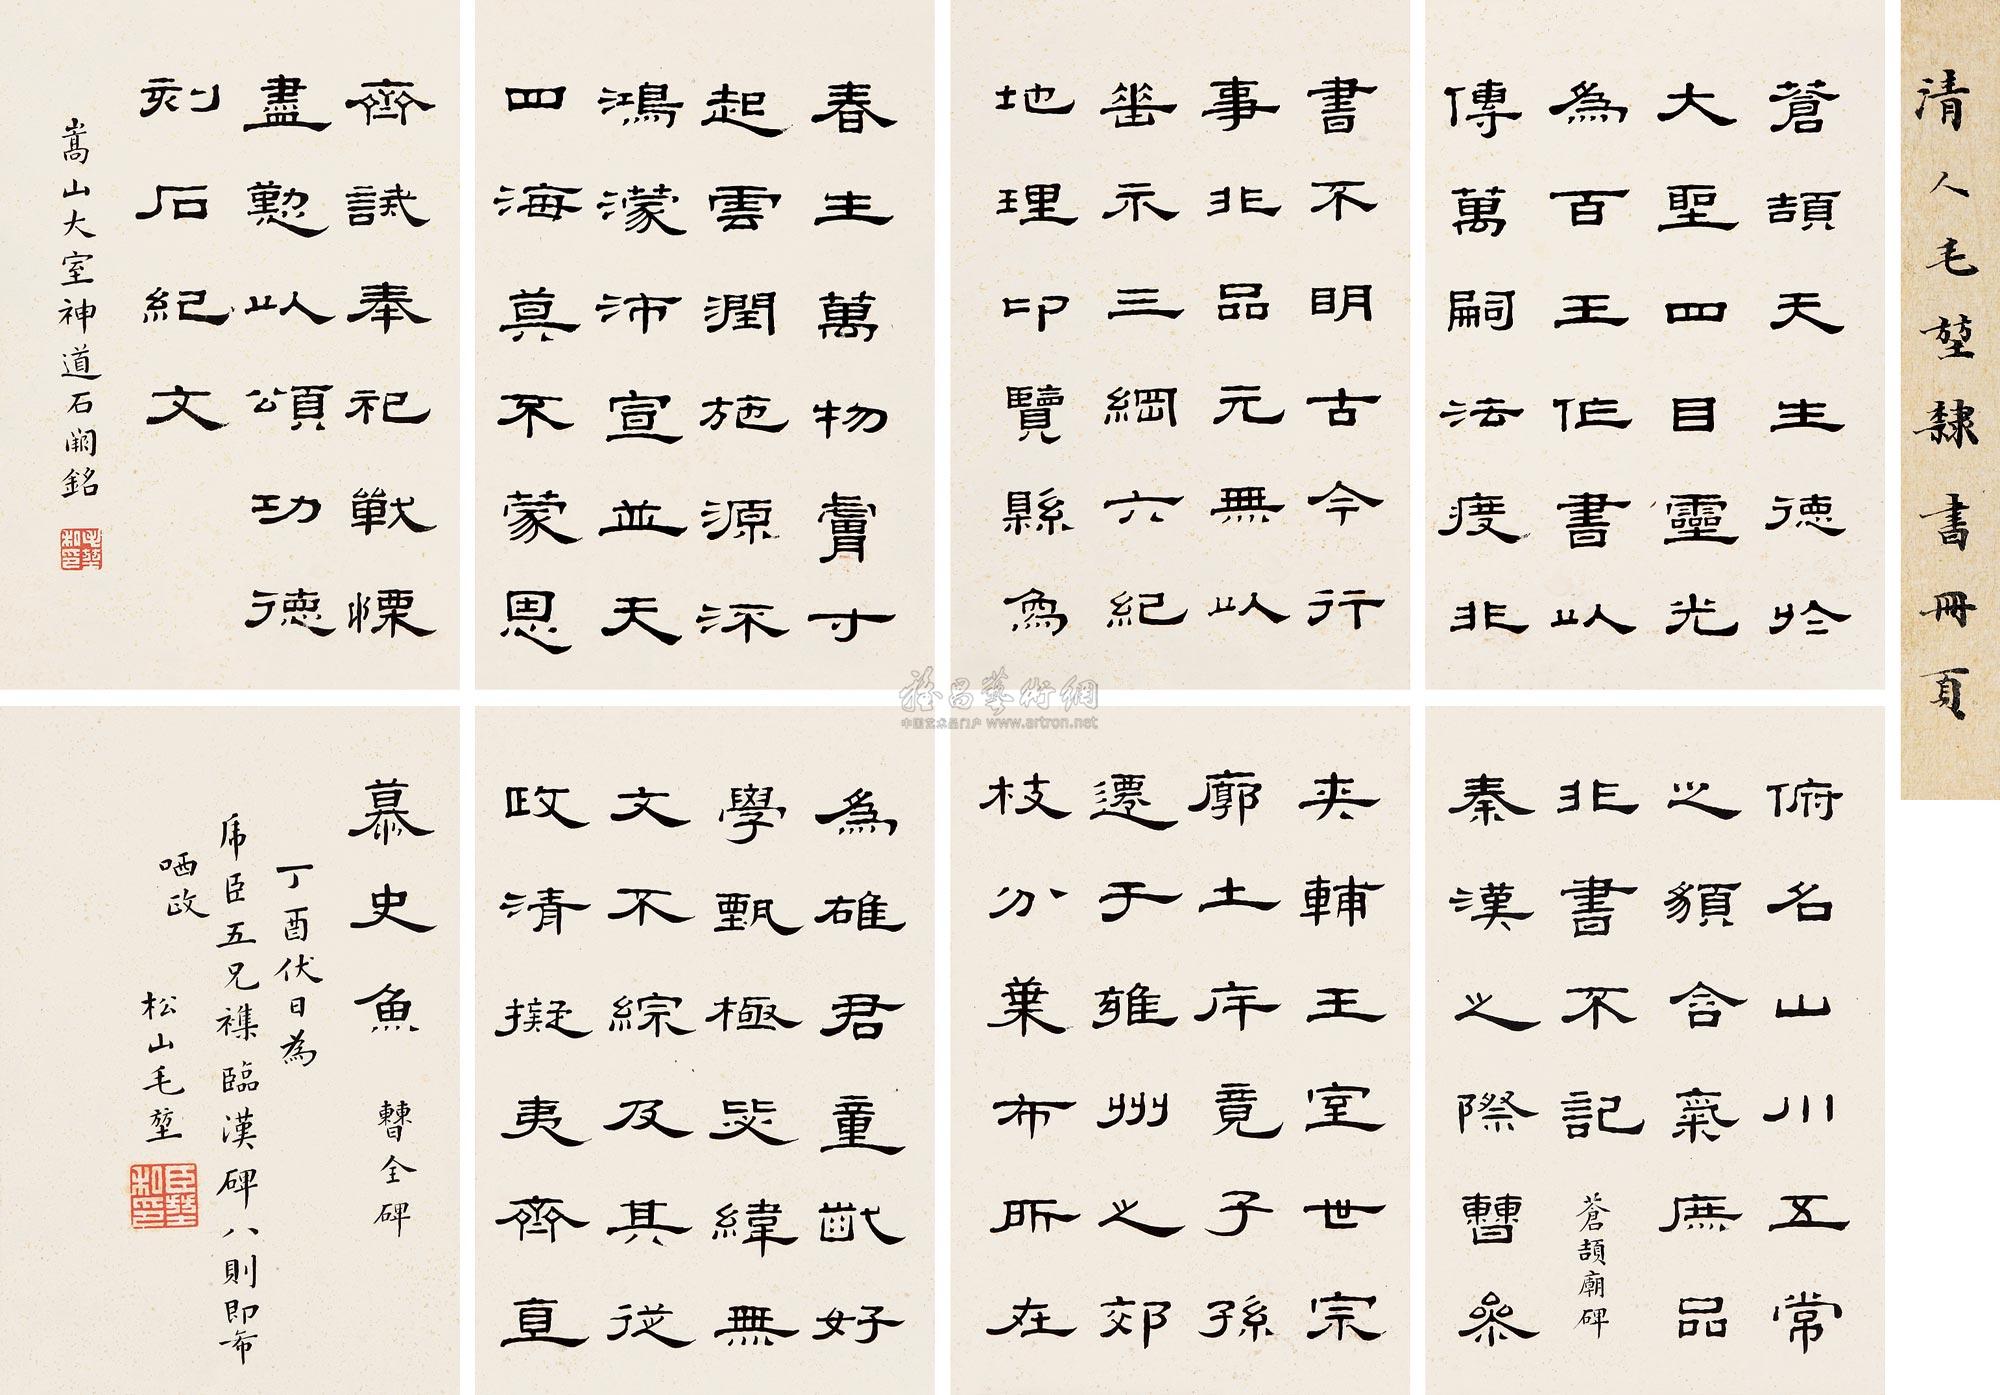 清人毛堃隸書冊頁
蒼頡天生德於
大聖四目靈光
為百王作書以
傳萬嗣法度非
書不明古今行
事非品元無以
垂示三綱六紀
地理印覽縣為
俯名山川五常
之貌含氣庶品
非書不記
蒼頡廟碑
秦漢之際曹參
夾輔王室世宗
廓土斥竟子孫
遷于雍州之郊
枝分葉布所在
為雄君童齔好
學甄極毖緯無
文不綜及其從
政清擬夷齊直
慕史魚
曹全碑
春生萬物膚寸
起雲潤施源流
鴻濛沛宣並天
四海莫不蒙恩
齊誡奉祀戰慄
盡懃以頌功德
刻石紀文
嵩山大室神道石闕銘
丁酉伏日為
席臣五兄襍臨漢碑八則即希
哂政
松山毛堃
雅昌藝術網
中国艺术品门户 www.artron.net